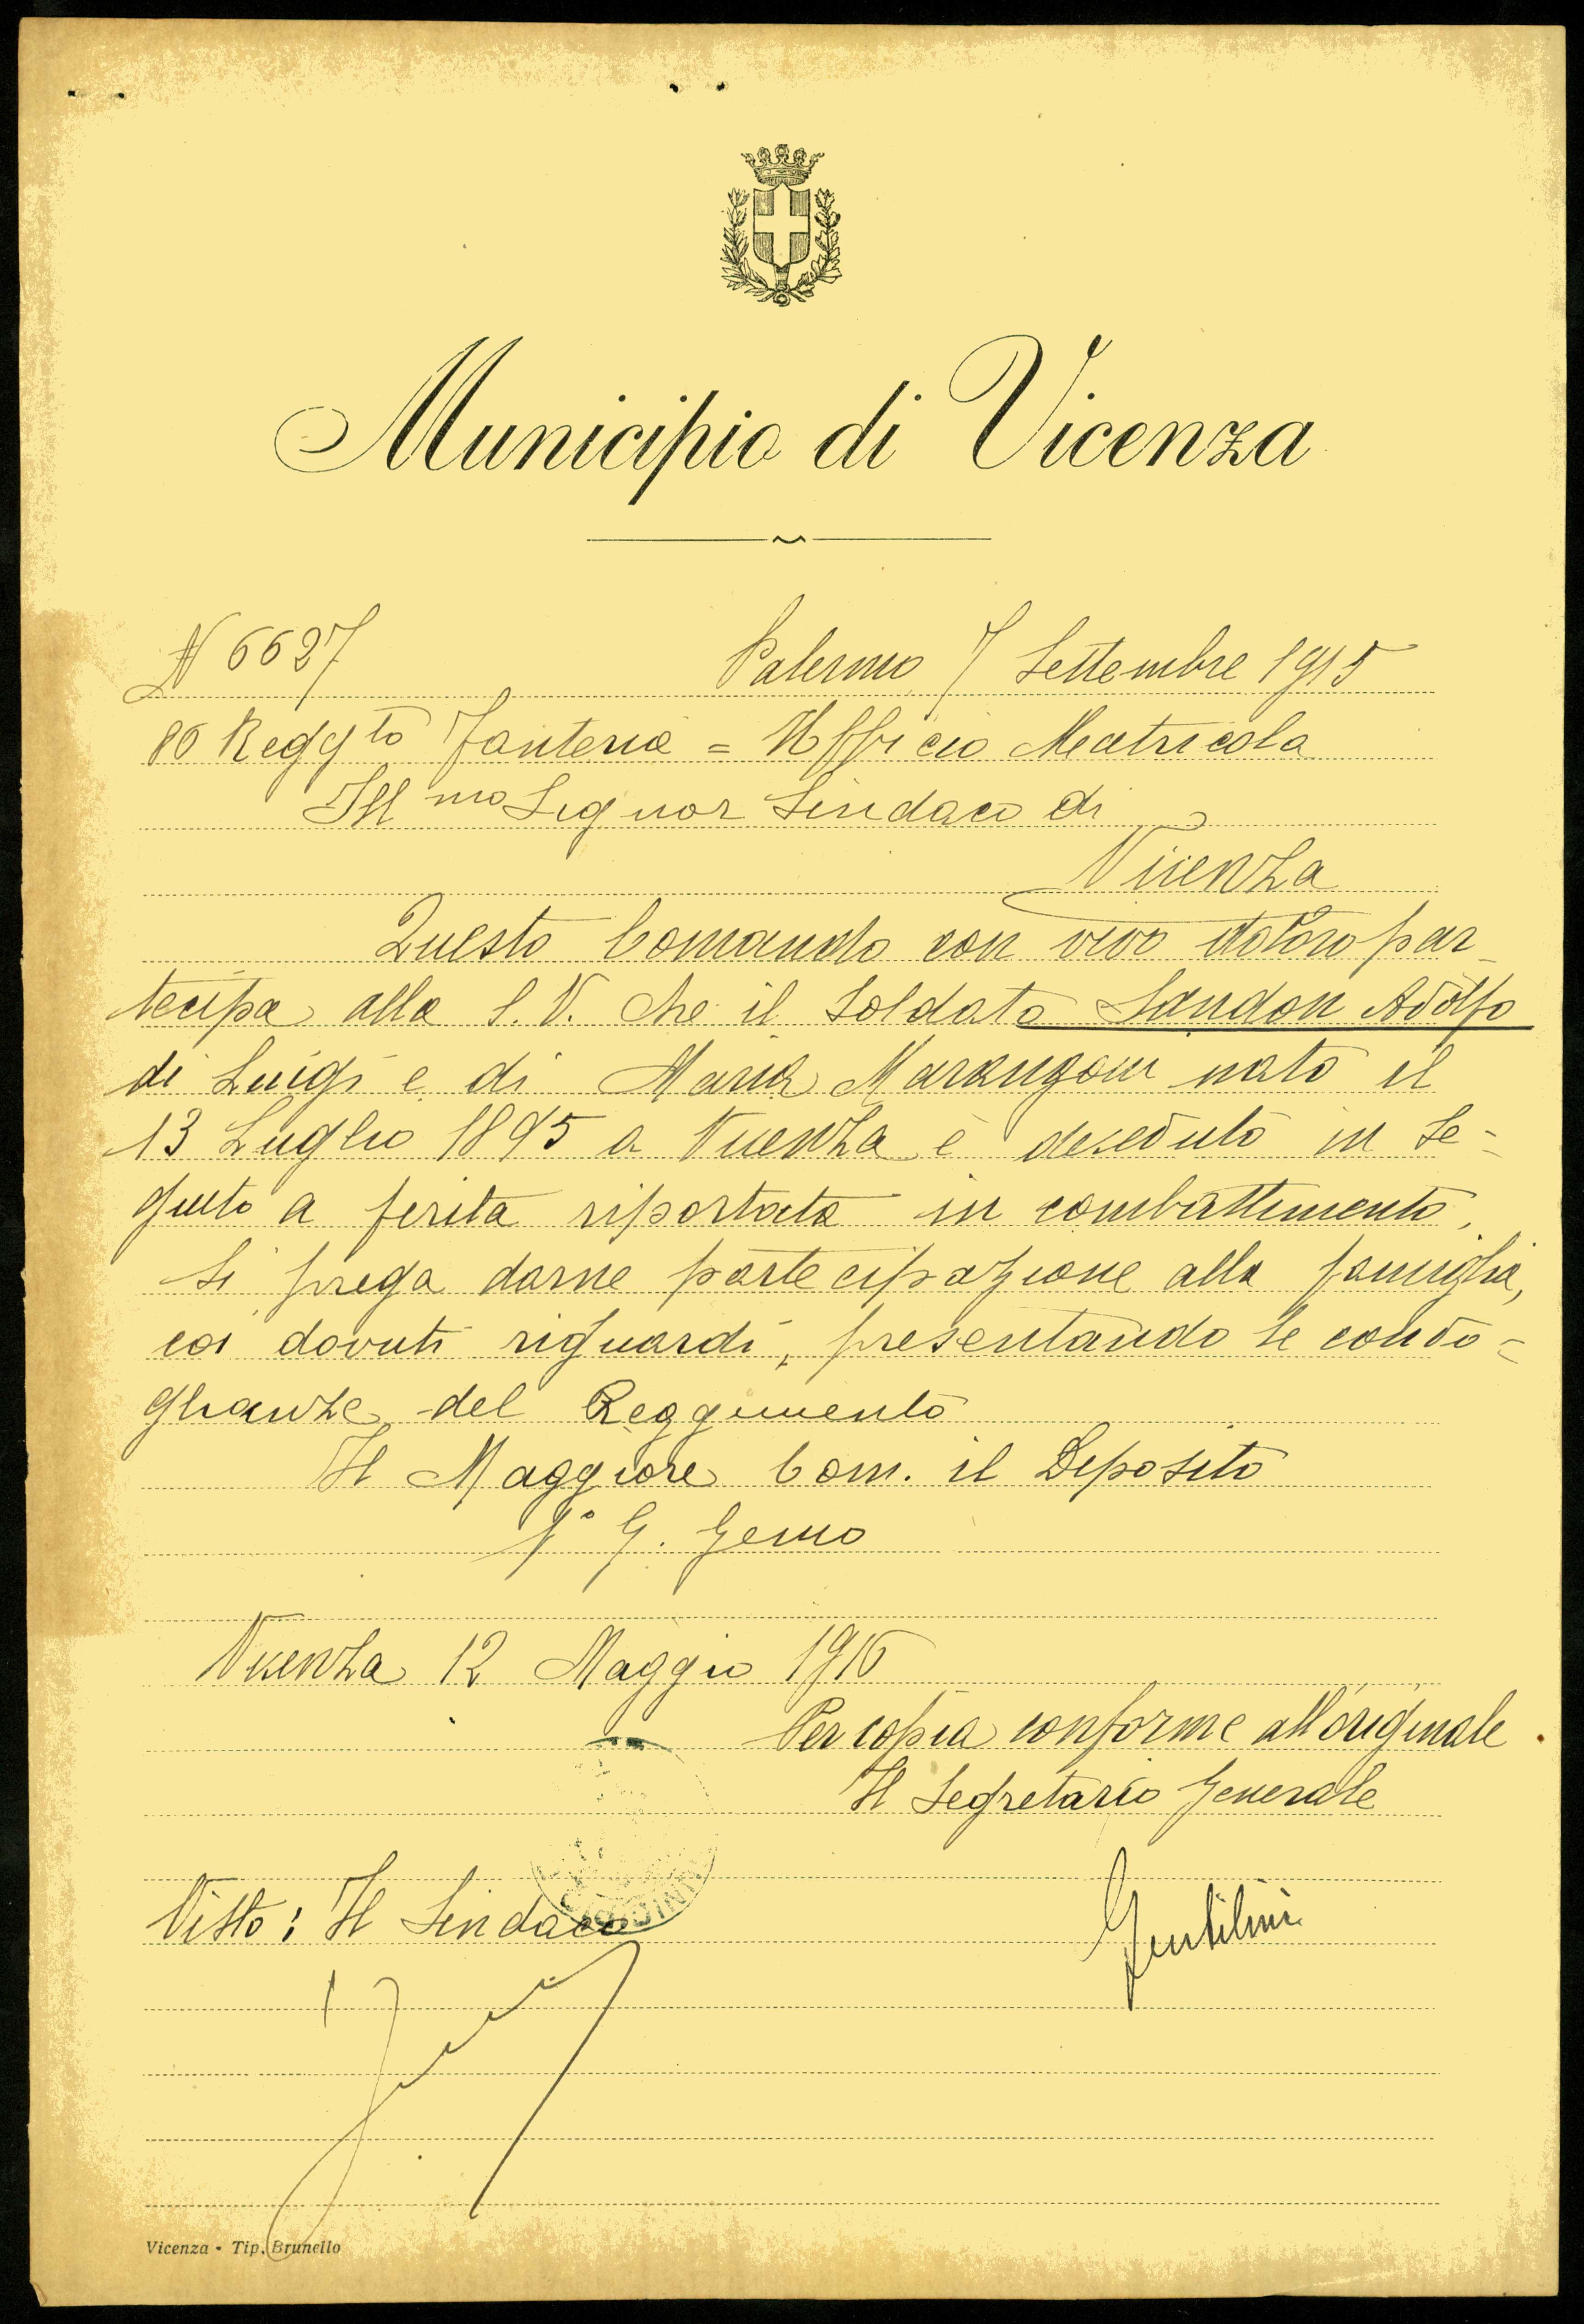 Municipio di Vicenza
N 6627 Palermo 7 Settembre 1915
86 Regg to Fanteria = Ufficio Matricola
Ill mo Signor Sindaco di
Vicenza
Questo Comando con vivo dolore par-
tecipa alla S. V. che il soldato Sandon Adolfo
di Luigi e di Maria Marangoni nato il
13 Luglio 1895 a Vicenza è deceduto in se=
guito a ferita riportata in combattimento,
Si prega darne partecipazione alla famiglia,
coi dovuti riguardi, presentando le condo=
glianze del Reggimento
Il Maggiore Com. il Deposito
f° G. Gemo
Vicenza 12 Maggio 1916
Per copia conforme all'originale
Il Segretario Generale
Visto: Il Sindaco
Gentilini
Vicenza - Tip. Brunello